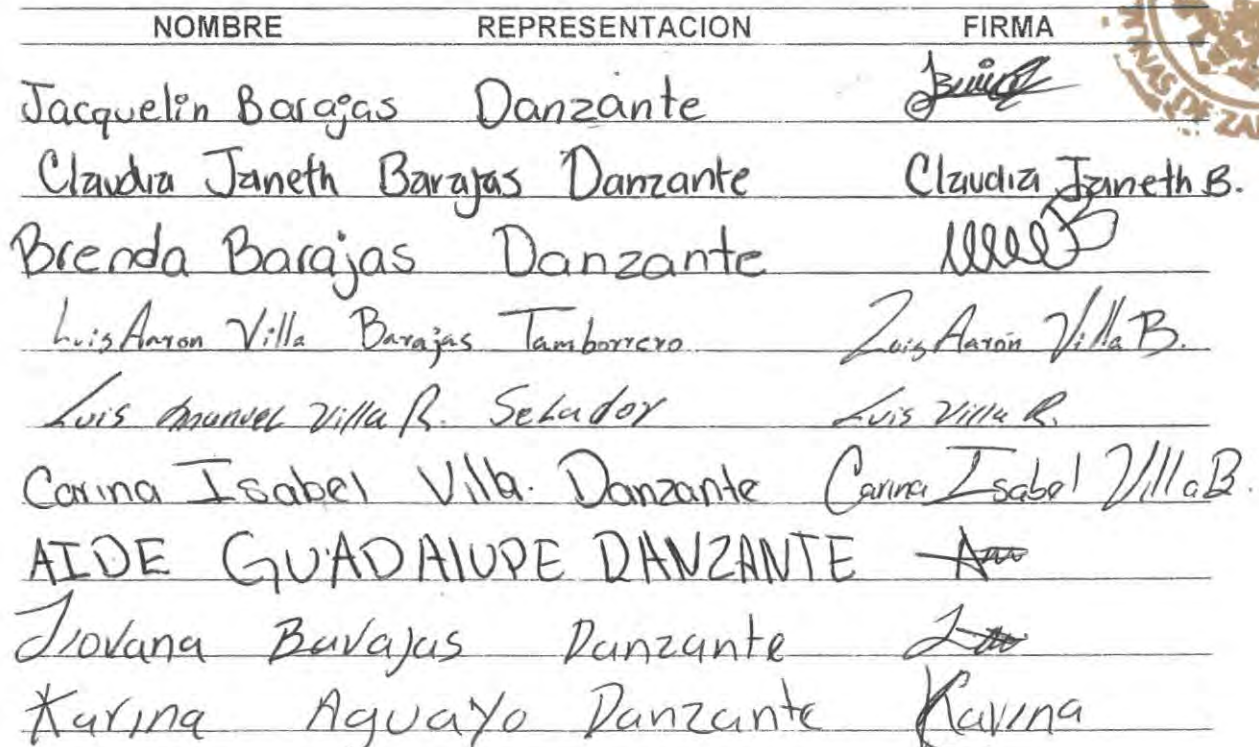 NOMBRE REPRESENTACION FIRMA
NAS DE ZA
Jacquelin Barajas Danzante
Claudia Janeth Barajas Danzante Claudia Janeth B.
Brenda Barajas Danzante
Luis Aaron Villa Barajas Tamborrero Luis Aarón Villa B.
Luis Manuel Villa R. Luis Villa R.
Carina Isabel Villa. Danzante Carina Isabel Villa B.
AIDE GUADALUPE DANZANTE
Jiovana Barajas Danzante
Karina Aguayo Danzante Karina